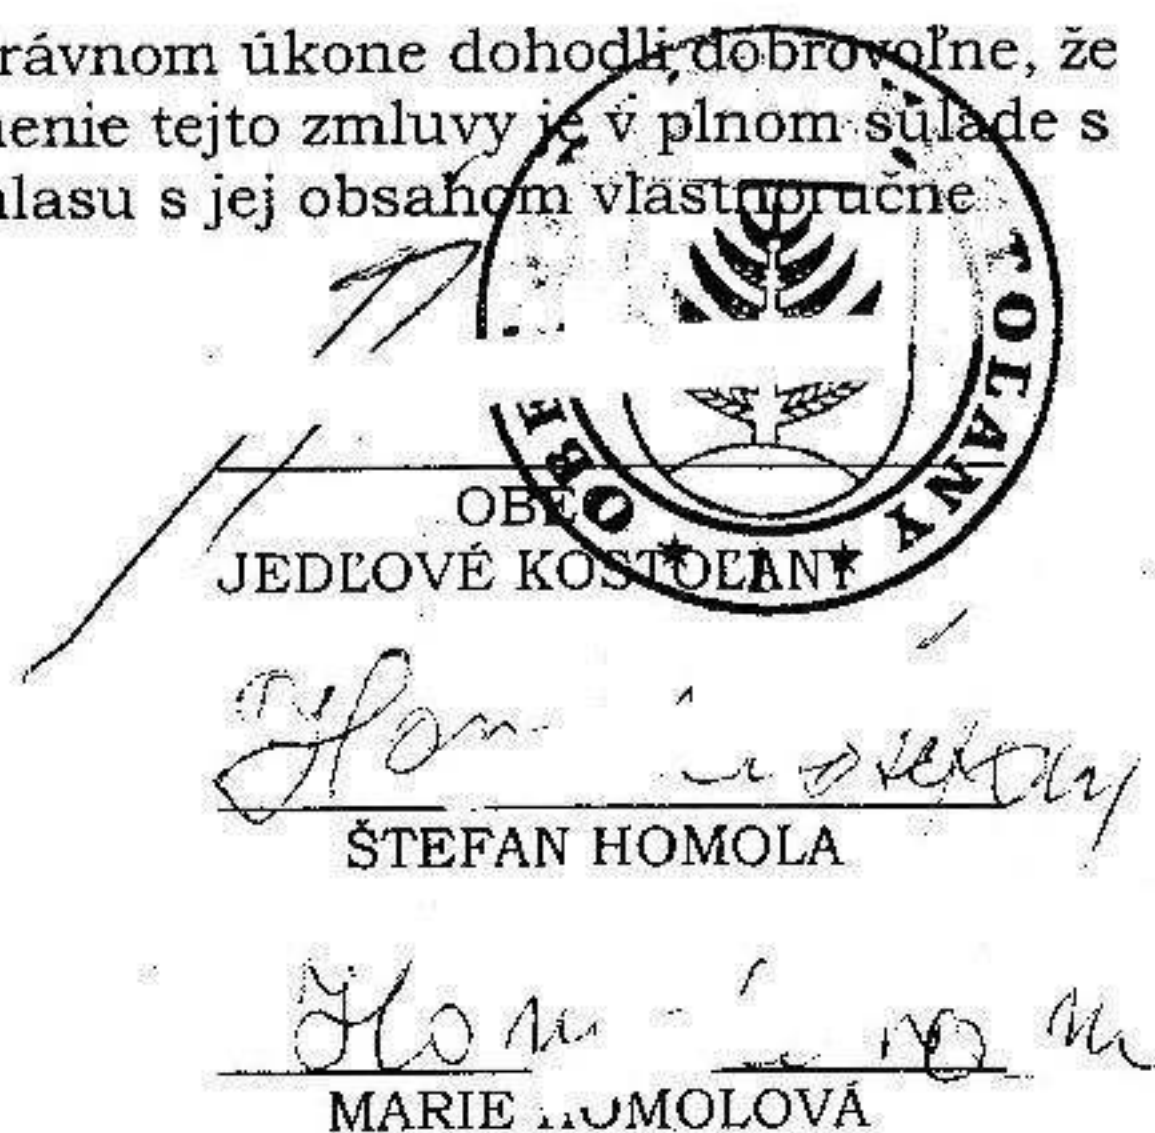 rávnom úkone dohodli dobrovoľne, že
nenie tejto zmluvy je v plnom súlade s
hlasu s jej obsahom vlastnoručne
TOĽANY
OBE
OBE
JEDĽOVÉ KOSTOĽANY
ŠTEFAN HOMOLA
MARIE HOMOLOVÁ